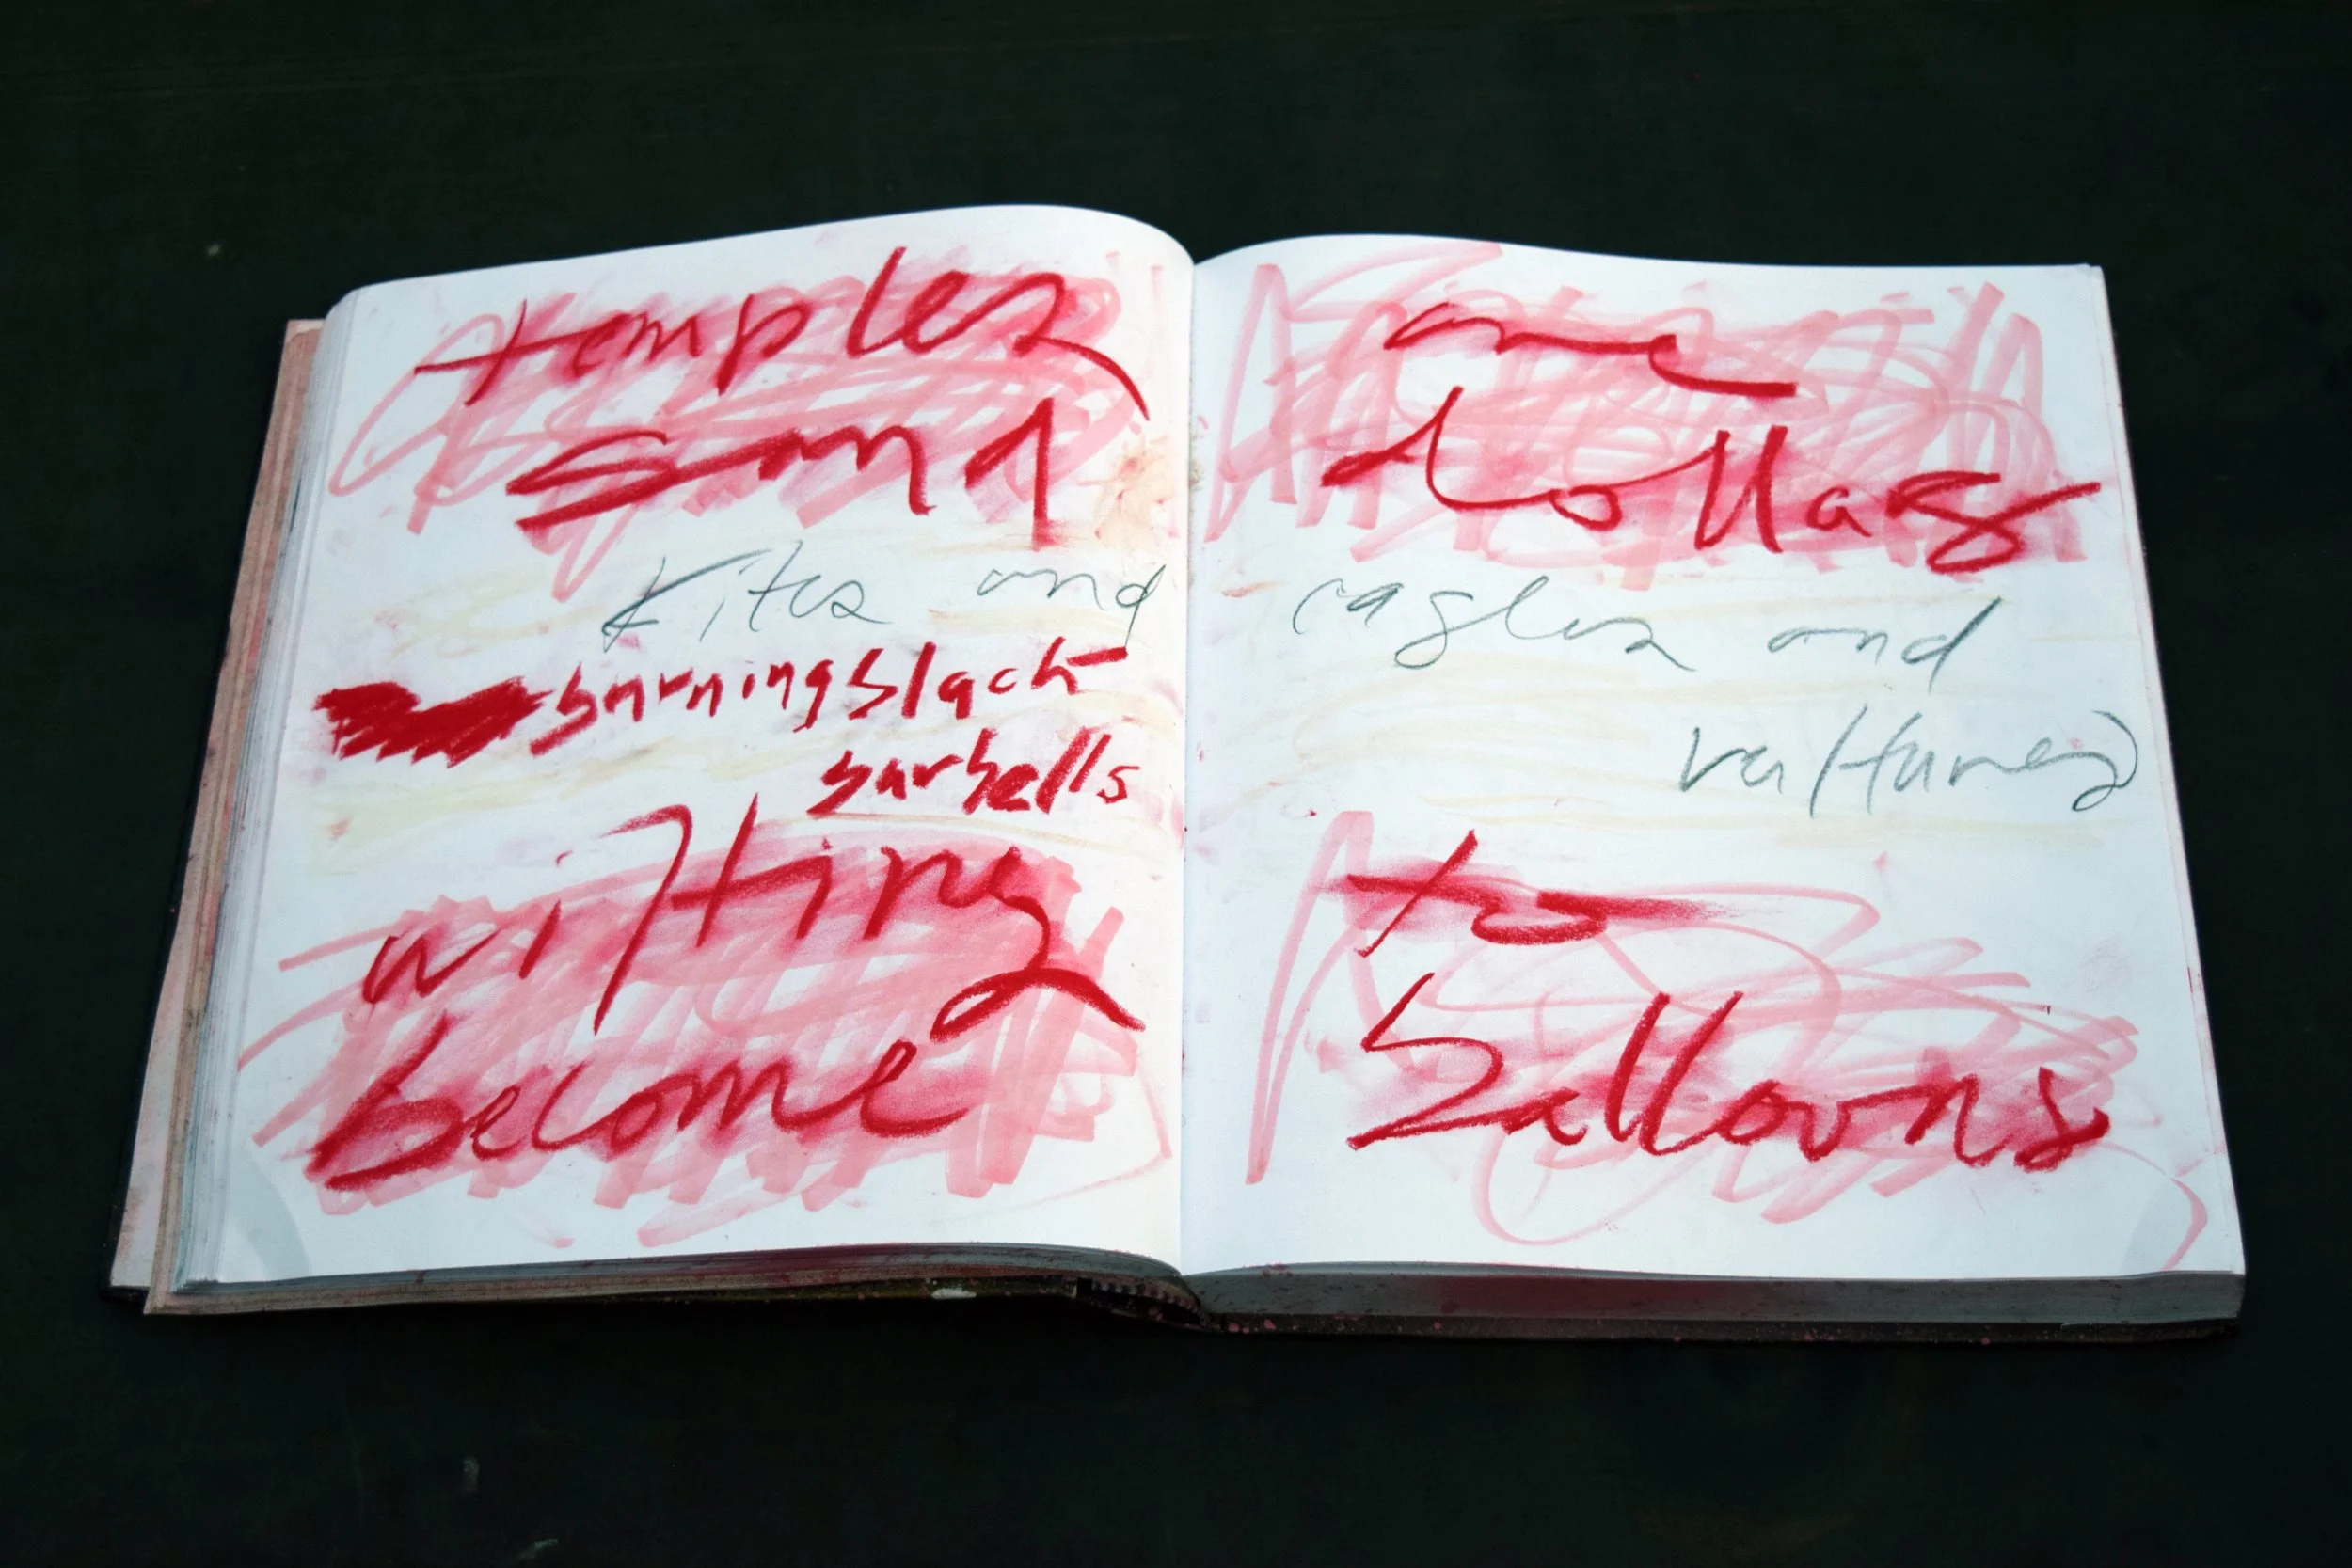 temples
sand
Kites and
burning black
barbells
wilting
become
dollars
eagles and
vultures
to
balloons